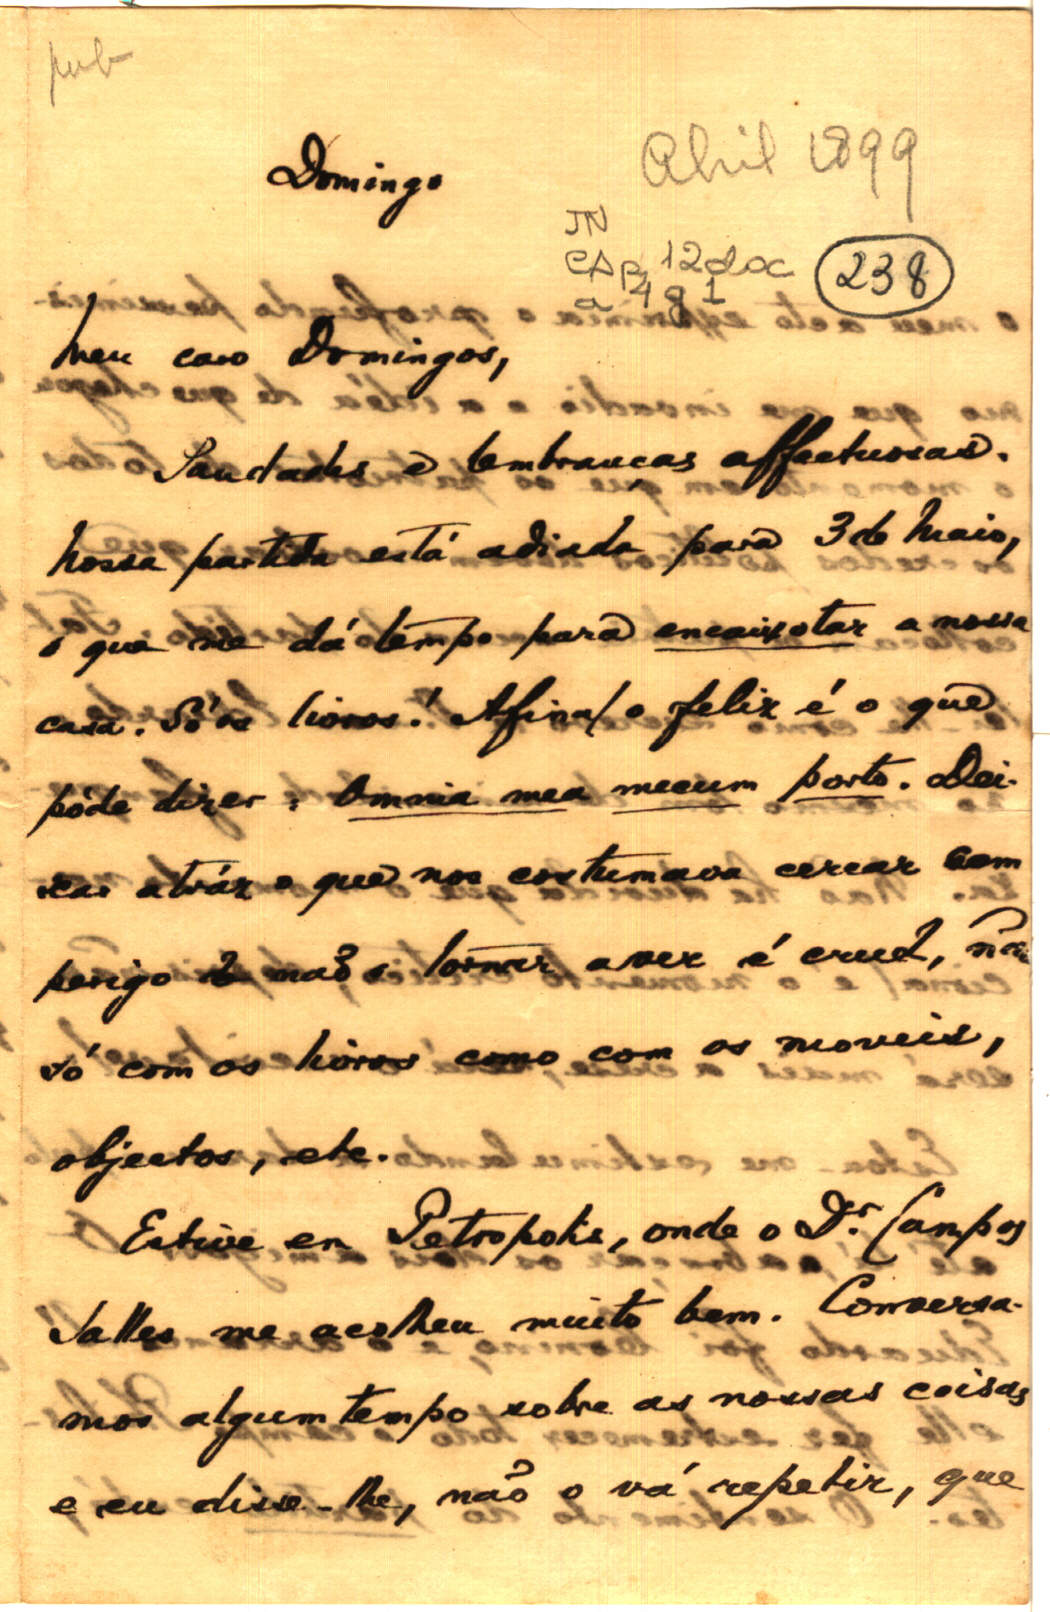 pub
Domingo
Abril 1899
JN
CAP 12 doc
a 4 g 1
238
Meu caro Domingos,
Saudades e lembranças affectuosas.
Nossa partida está adiada para 3 de Maio,
o que me dá tempo para encaixotar a nossa
casa. Só os livros! Afinal o feliz é o que
póde dizer: Omnia mea mecum porto. Dei-
xar atráz o que nos costumava cercar com
perigo de não o tornar a ver é cruel, não
só com os livros como com os moveis,
objectos, etc.
Estive em Petropolis, onde o Dr. Campos
Salles me acolheu muito bem. Conversa-
mos algum tempo sobre as nossas coisas
e eu disse-lhe, não o vá repetir, que